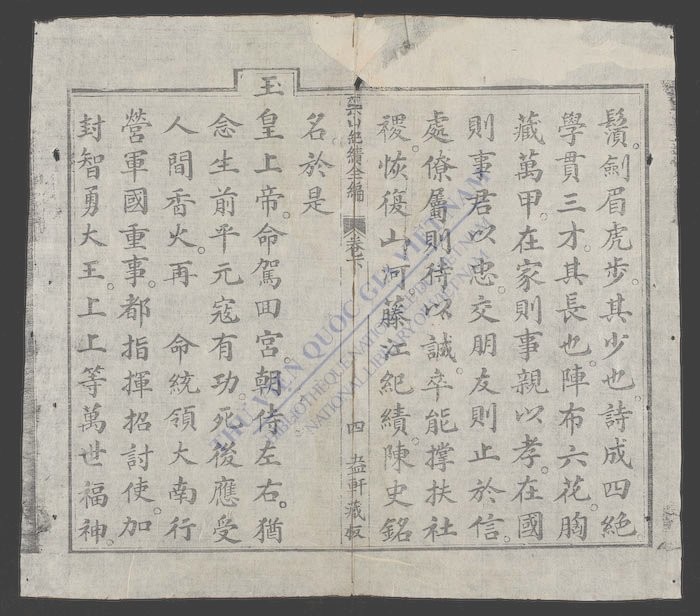 鬚濆。劍眉虎步。其少也。詩成四絕
學貫三才。其長也。陣布六花。胸
藏萬甲。在家則事親以孝。在國
則事君以忠。交朋友則止於信。
處僚屬則待以誠。卒能撑扶社
稷。恢復山河。藤江紀績。陳史銘
名。於是
山紀績全編 卷下 四 盐軒藏板
玉皇上帝。命駕回宮。朝侍左右。猶
念生前平元寇有功。死後應受
人間香火。再 命統領大南行
營軍國重事。都指揮招討使。加
封智勇大王。上上等萬世福神。
THƯ VIỆN QUỐC GIA VIỆT NAM
BIBLIOTHÈQUE NATIONALE DU VIETNAM
NATIONAL LIBRARY OF VIETNAM